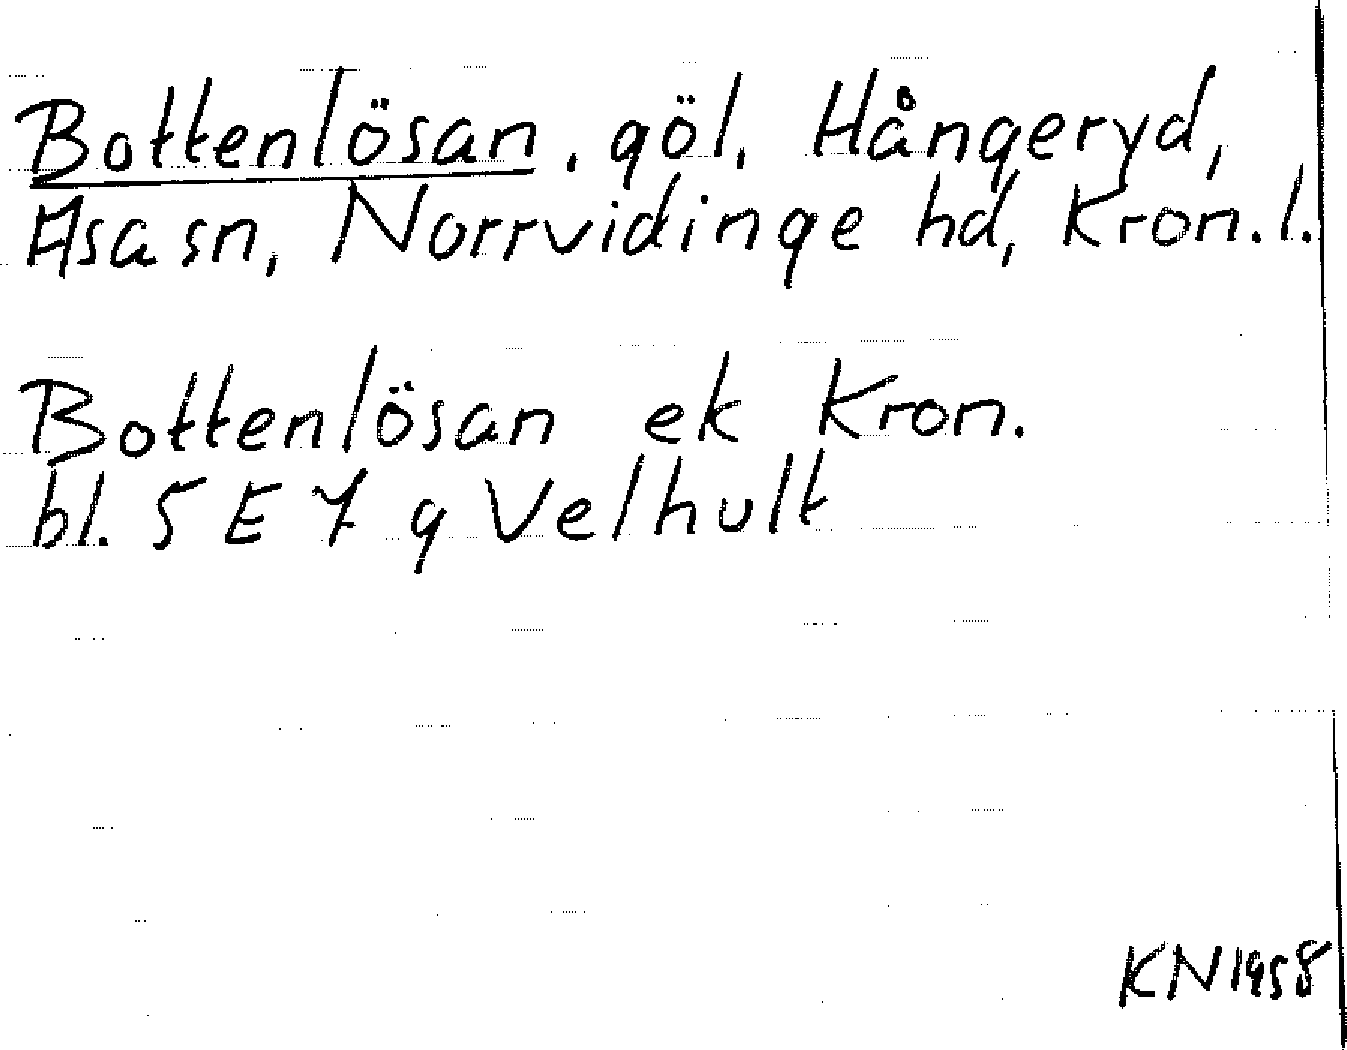 Bottenlösan, göl, Hångeryd,
Asa sn, Norrvidinge hd, Kron. l.
Bottenlösan ek Kron.
bl. 5 E 7 g Velhult
KN 1958